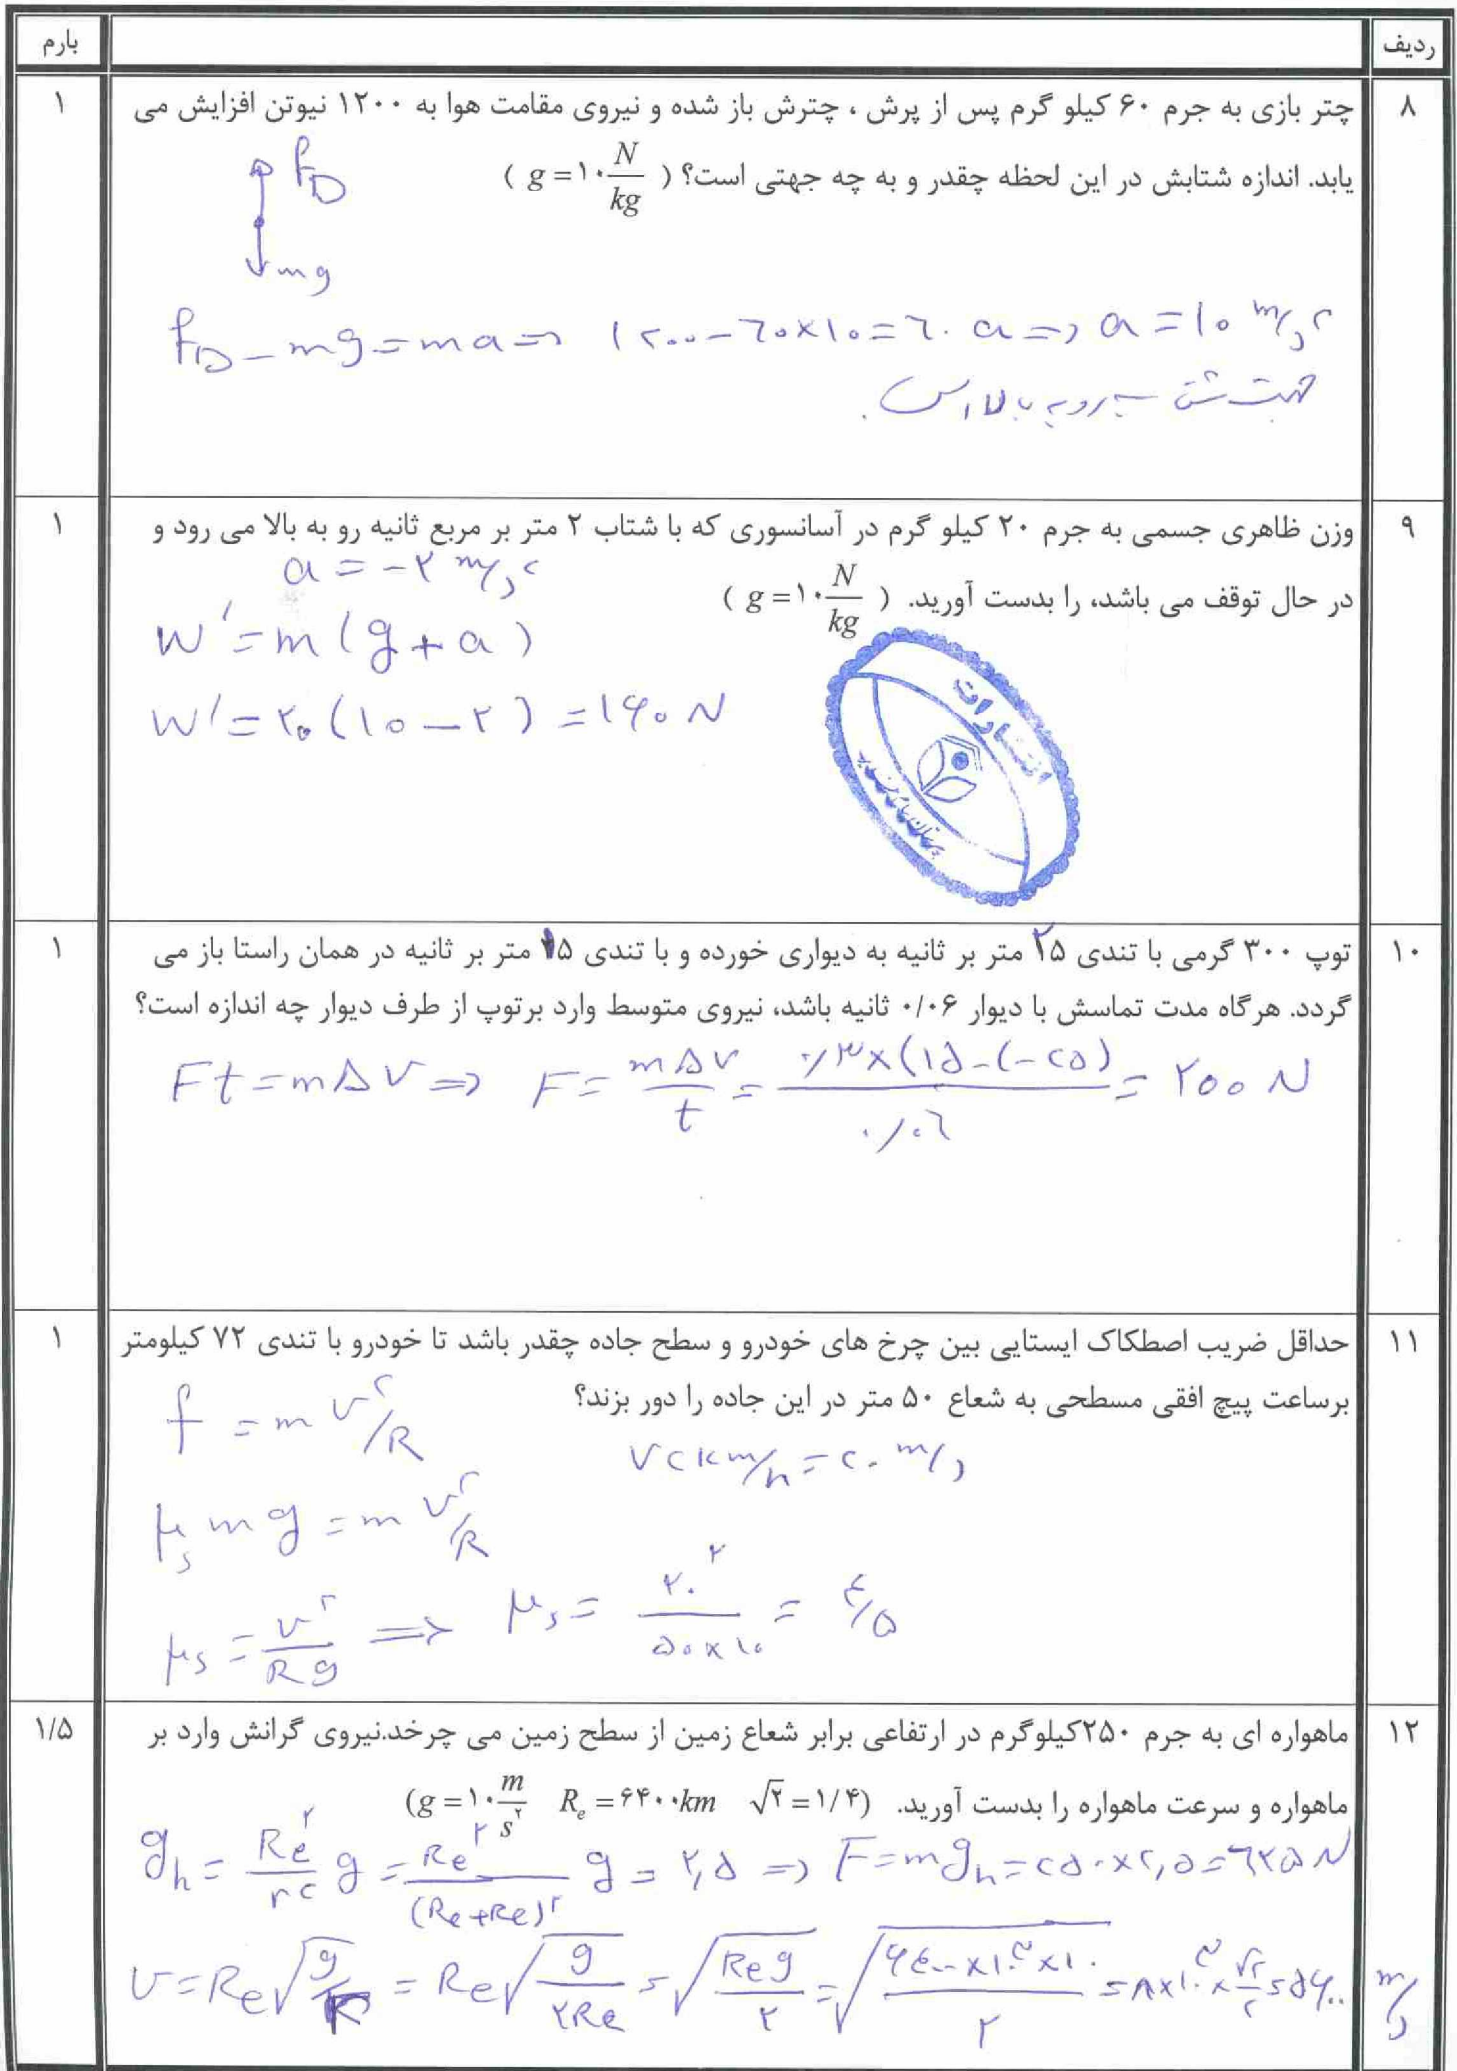 ردیف
بارم
۸
چتر بازی به جرم ۶۰ کیلو گرم پس از پرش ، چترش باز شده و نیروی مقامت هوا به ۱۲۰۰ نیوتن افزایش می
۱
یابد. اندازه شتابش در این لحظه چقدر و به چه جهتی است؟ ( g=۱۰ N/kg )
f_D
mg
f_D - mg = ma => ۱۲۰۰ - ٦۰×۱۰ = ٦۰ a => a = ۱۰ m/s²
جهت شتاب رو به بالا است.
۹
وزن ظاهری جسمی به جرم ۲۰ کیلو گرم در آسانسوری که با شتاب ۲ متر بر مربع ثانیه رو به بالا می رود و
۱
در حال توقف می باشد، را بدست آورید. ( g=۱۰ N/kg )
a = -۲ m/s²
W' = m(g+a)
W' = ۲۰(۱۰-۲) = ۱۶۰ N
انتشارات
۱۰
توپ ۳۰۰ گرمی با تندی ۲۵ متر بر ثانیه به دیواری خورده و با تندی ۱۵ متر بر ثانیه در همان راستا باز می
۱
گردد. هرگاه مدت تماسش با دیوار ۰/۰۶ ثانیه باشد، نیروی متوسط وارد برتوپ از طرف دیوار چه اندازه است؟
Ft = mΔV => F = mΔV/t = ۰/۳×(۱۵-(-۲۵))/۰/۰٦ = ۲۰۰ N
۱۱
حداقل ضریب اصطکاک ایستایی بین چرخ های خودرو و سطح جاده چقدر باشد تا خودرو با تندی ۷۲ کیلومتر
۱
برساعت پیچ افقی مسطحی به شعاع ۵۰ متر در این جاده را دور بزند؟
f = m v²/R
۷۲ km/h = ۲۰ m/s
μs mg = m v²/R
μs = v²/Rg => μs = ۲۰²/۵۰×۱۰ = ٤/۵
۱۲
ماهواره ای به جرم ۲۵۰کیلوگرم در ارتفاعی برابر شعاع زمین از سطح زمین می چرخد.نیروی گرانش وارد بر
۱/۵
ماهواره و سرعت ماهواره را بدست آورید. (g=۱۰ m/s² Re=۶۴۰۰km √۲=۱/۴)
g_h = Re²/r² g = Re²/(Re+Re)² g = ۲٫۵ => F = mg_h = ۲۵۰×۲٫۵ = ٦۲۵ N
v = Re√g/r = Re√g/۲Re = √Re g/۲ = √۶٤۰۰×۱۰³×۱۰/۲ = ۸×۱۰³×√۲/۲ = ۵۶۰۰ m/s